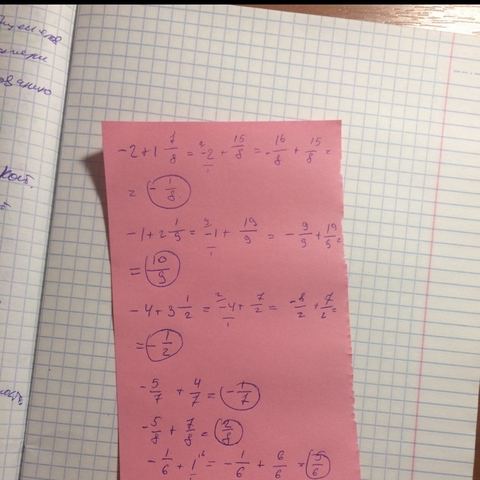 -2+1 7/8 = -2/1 + 15/8 = -16/8 + 15/8 =
= -1/8
-1+2 1/9 = -1/1 + 19/9 = -9/9 + 19/9 =
= 10/9
-4+3 1/2 = -4/1 + 7/2 = -8/2 + 7/2 =
= -1/2
-5/7 + 4/7 = -1/7
-5/8 + 7/8 = 2/8
-1/6 + 1 = -1/6 + 6/6 = 5/6